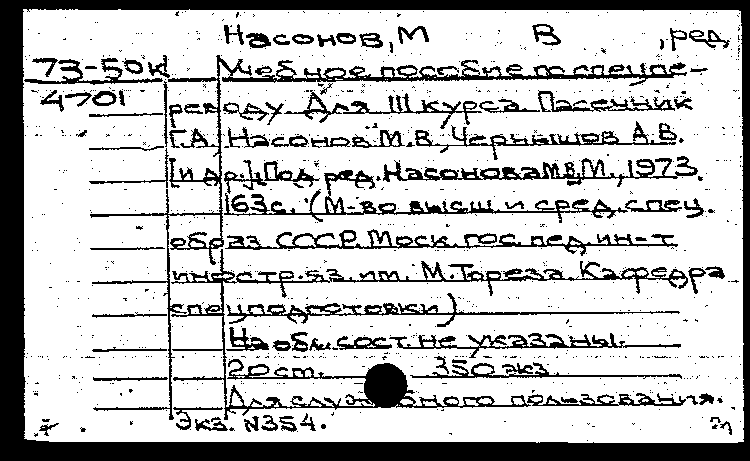 Насонов, М В , ред.
73-50к Учебное пособие по спецпе-
4701 реводу. Для III курса. Пасечник
Г.А., Насонов М.В., Чернышов А.В.
[и др.]. Под ред. Насонова М.В. М., 1973.
163с. (М-во высш и сред. спец.
образ СССР. Моск. гос. пед. ин-т
иностр. яз. им. М.Тореза. Кафедра
спецподготовки)
На обл. сост. не указаны.
20 ст. 350 экз.
Для служебного пользования.
Экз. N354.